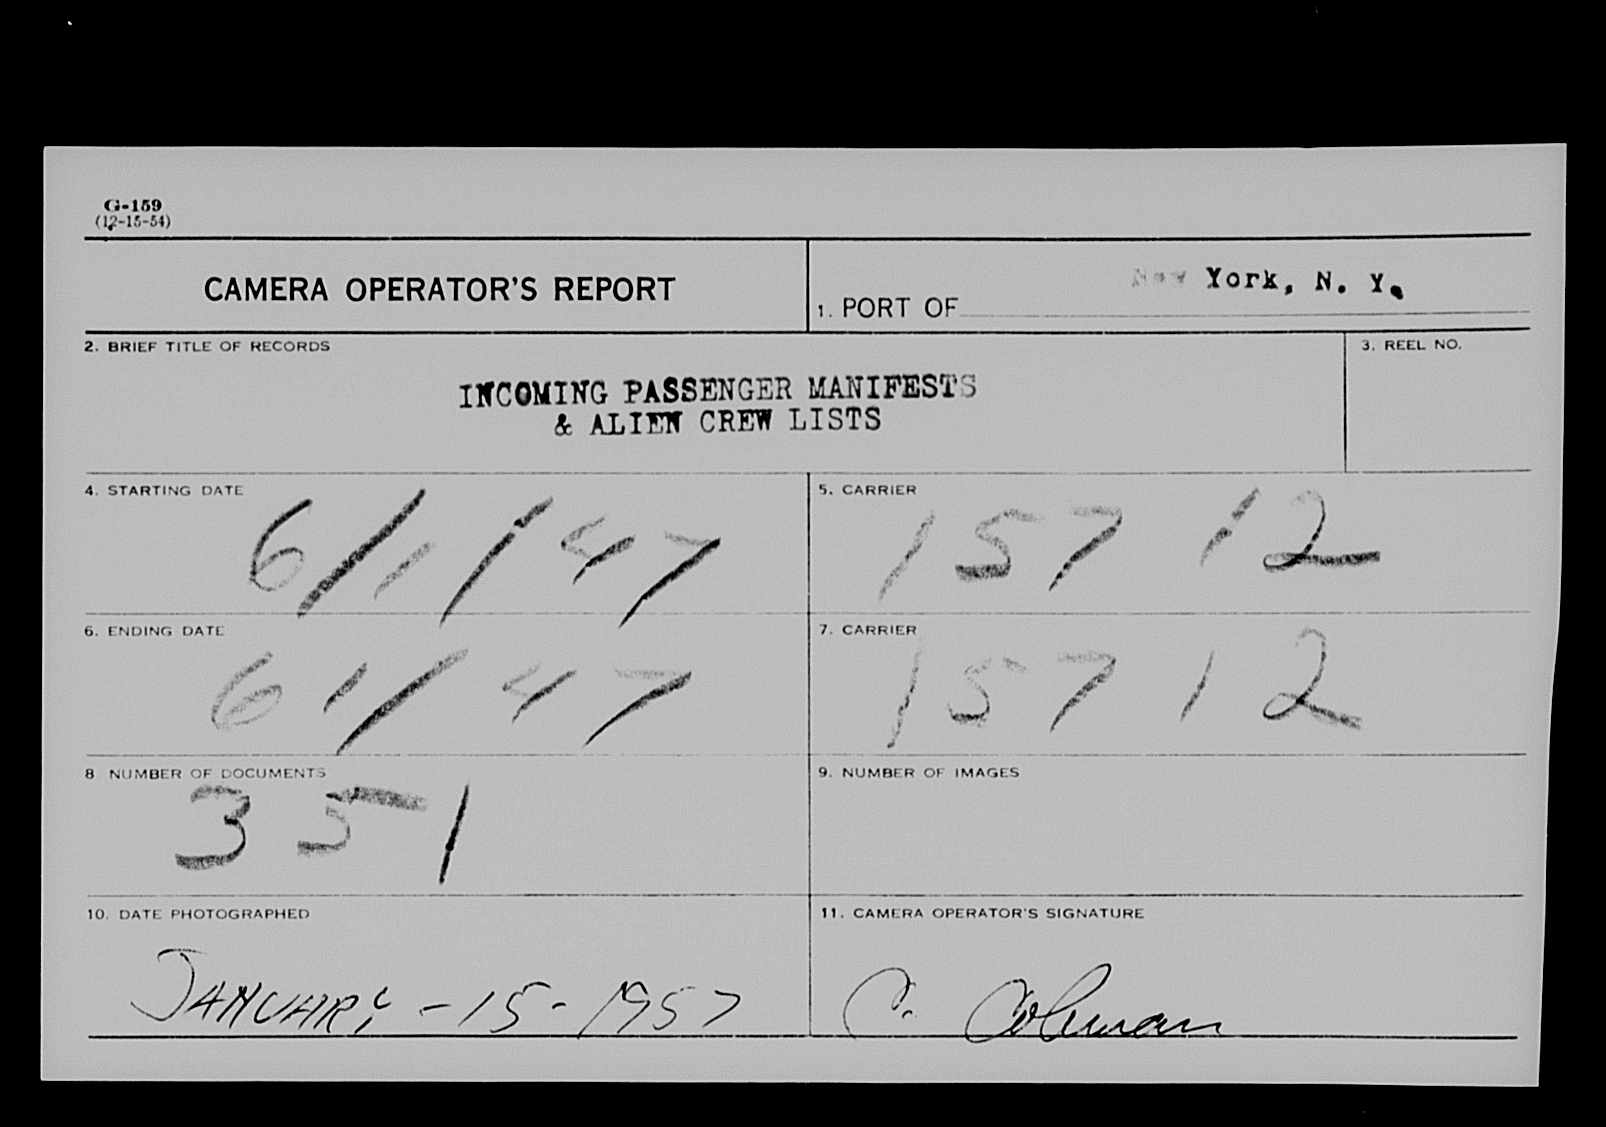 G-159
(12-15-54)
CAMERA OPERATOR'S REPORT
1. PORT OF New York, N. Y.
2. BRIEF TITLE OF RECORDS
3. REEL NO.
INCOMING PASSENGER MANIFESTS
& ALIEN CREW LISTS
4. STARTING DATE
6/1/47
5. CARRIER
157 12
6. ENDING DATE
6 1/47
7. CARRIER
157 12
8 NUMBER OF DOCUMENTS
351
9. NUMBER OF IMAGES
10. DATE PHOTOGRAPHED
JANUARY - 15 - 1957
11. CAMERA OPERATOR'S SIGNATURE
C. Coleman